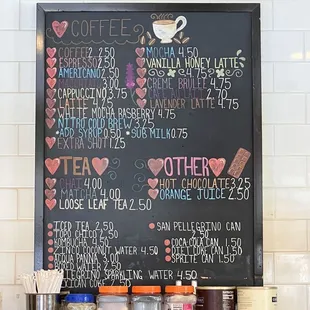 COFFEE
COFFEE 2.50
ESPRESSO 2.50
AMERICANO 2.50
3.00
CAPPUCCINO 3.75
LATTE 4.75
WHITE MOCHA RASBERRY 4.75
NITRO COLD BREW 3.25
ADD SYRUP 0.50 SUB MILK 0.75
EXTRA SHOT 1.25
MOCHA 4.50
VANILLA HONEY LATTE
4.75
CREME BRULEE 4.75
4.75
LAVENDER LATTE 4.75
TEA
CHAI 4.00
MATCHA 4.00
LOOSE LEAF TEA 2.50
OTHER
HOT CHOCOLATE 3.25
ORANGE JUICE 2.50
ICED TEA 2.50
TOPO CHICO 2.50
KOMBUCHA 4.50
COCONUT WATER 4.50
ACQUA PANNA 3.00
SPARKLING WATER 4.50
SAN PELLEGRINO CAN
2.50
COCA COLA CAN 1.50
DIET COKE CAN 1.50
SPRITE CAN 1.50